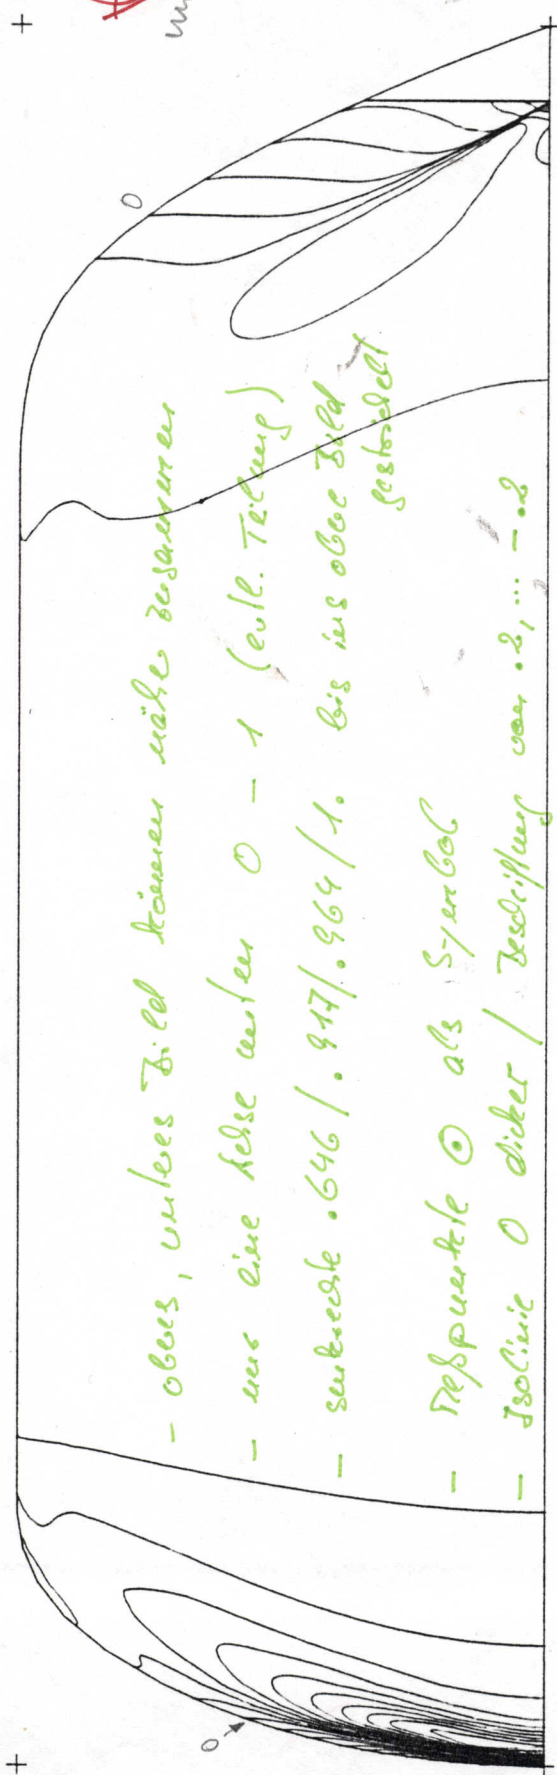 - oberes, unteres Bild können näher zusammen
- nur eine Achse unten 0 - 1 (evtl. Teilung)
- senkrechte .646 / .917 / .964 / 1. bis ins obere Bild
gestrichelt
- Meßpunkte ⊙ als Symbol
- Isolinie 0 dicker / Beschriftung von .2, ... -.2
0
0